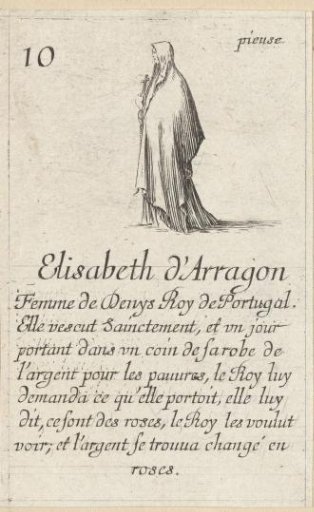 10
pieuse
Elisabeth d'Arragon
Femme de Denys Roy de Portugal.
Elle vescut Sainctement, et vn jour
portant dans vn coin de sa robe de
l'argent pour les pauures, le Roy luy
demanda ce qu'elle portoit, elle luy
dit, ce sont des roses, le Roy les voulut
voir; et l'argent se trouua changé en
roses.